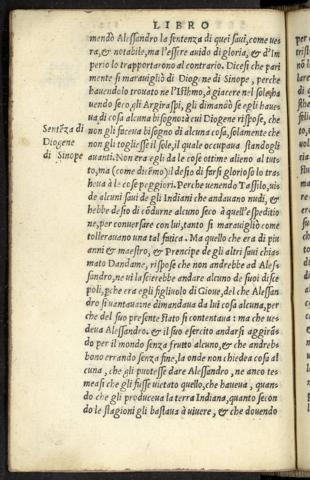 LIBRO
mendò Alessandro la sentenza di quei savi, come ve
ra, & notabile, ma l'essere avido di gloria, & d'Im
perio lo trapportarono al contrario. Dicesi che pari
mente si maravigliò di Diogene di Sinope, perche
havendolo trovato ne l'Isthmo, à giacere nel sole, ha
vendo seco gli Argiraspi, gli dimandò se egli have
va di cosa alcuna bisogno: à cui Diogene rispose, che
non gli faceva bisogno di alcuna cosa, solamente che
non gli togliesse il sole, il quale occupava standogli
avanti. Non era egli da le cose ottime alieno al tut/
to, ma (come dicēmo) il desio di farsi glorioso lo tra
heva à le cose peggiori. Perche venendo Tassilo, vi
de alcuni savi de gli Indiani che andavano nudi, &
hebbe desio di cōdurne alcuno seco à quell'espeditio
ne, per conversare con lui, tanto si maravigliò come
tolleravano una tal fatica. Ma quello che era di piu
anni & maestro, & Prencipe de gli altri savi chia
mato Dandame, rispose che non andrebbe ad Ales
sandro, ne vi lascierebbe andare alcuno de suoi disce
poli, pche era egli figlivolo di Giove, del che Alessan
dro si vantava: ne dimandava da lui cosa alcuna, per
che del suo presente stato si contentava: ma che ve
deva Alessandro, & il suo esercito andarsi aggirā
do per il mondo senza frutto alcuno, & che andreb
bono errando senza fine, la onde non chiedea cosa al
cuna, che gli puotesse dare Alessandro, ne anco te
mea, si che gli fusse vietato quello, che haveva, quan
do che gli produceva la terra Indiana, quanto secon
do le stagioni gli bastava à vivere, & che dovendo
Sentēza di
Diogene
di Sinope